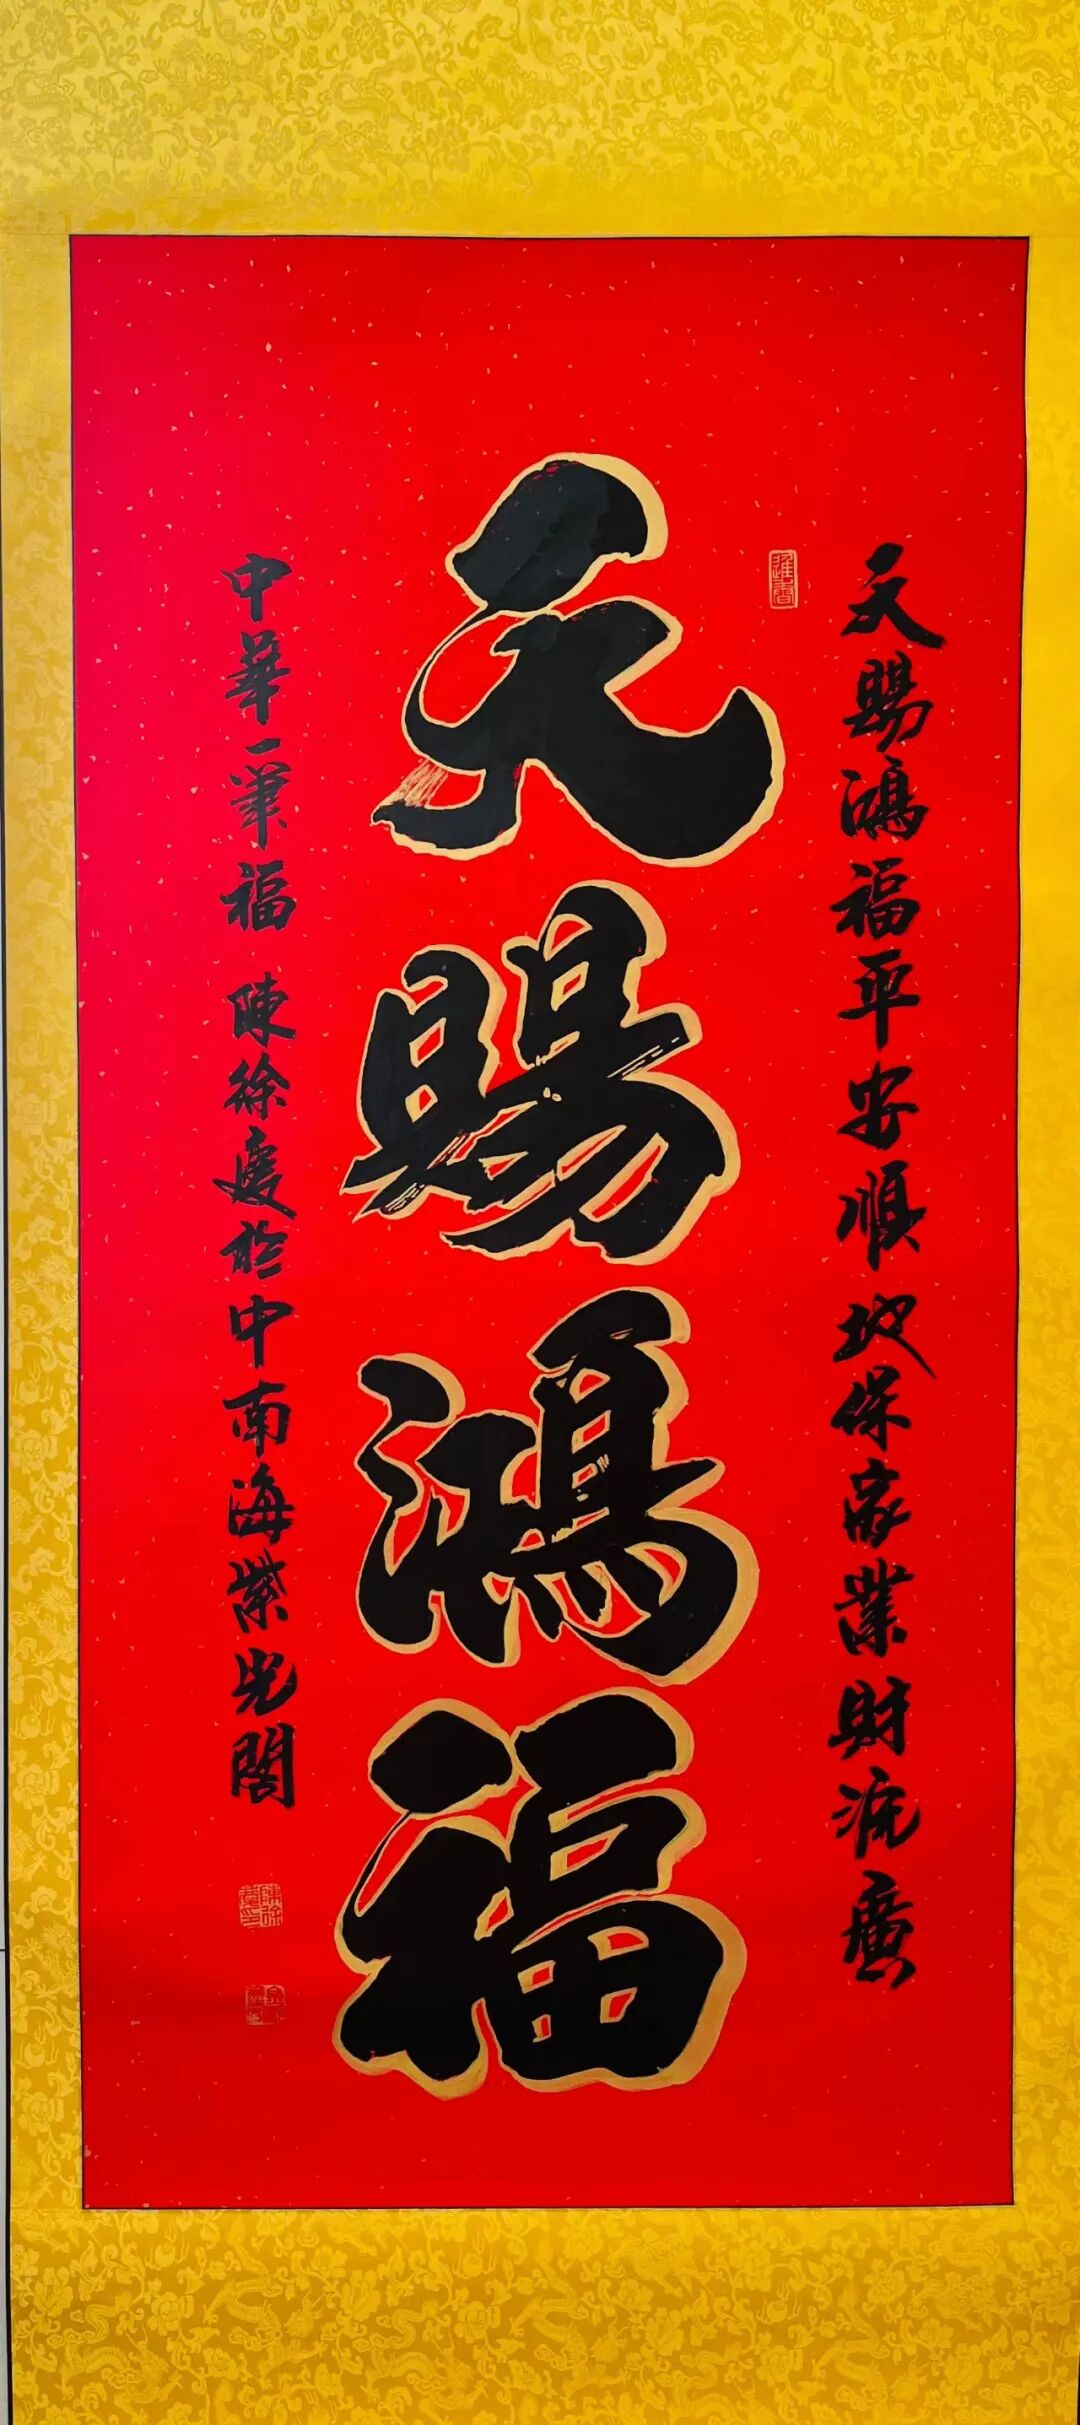 天賜鴻福平安順地保家業財源廣
天賜鴻福
中華一筆福 陳徐慶於中南海紫光閣
陳徐慶印